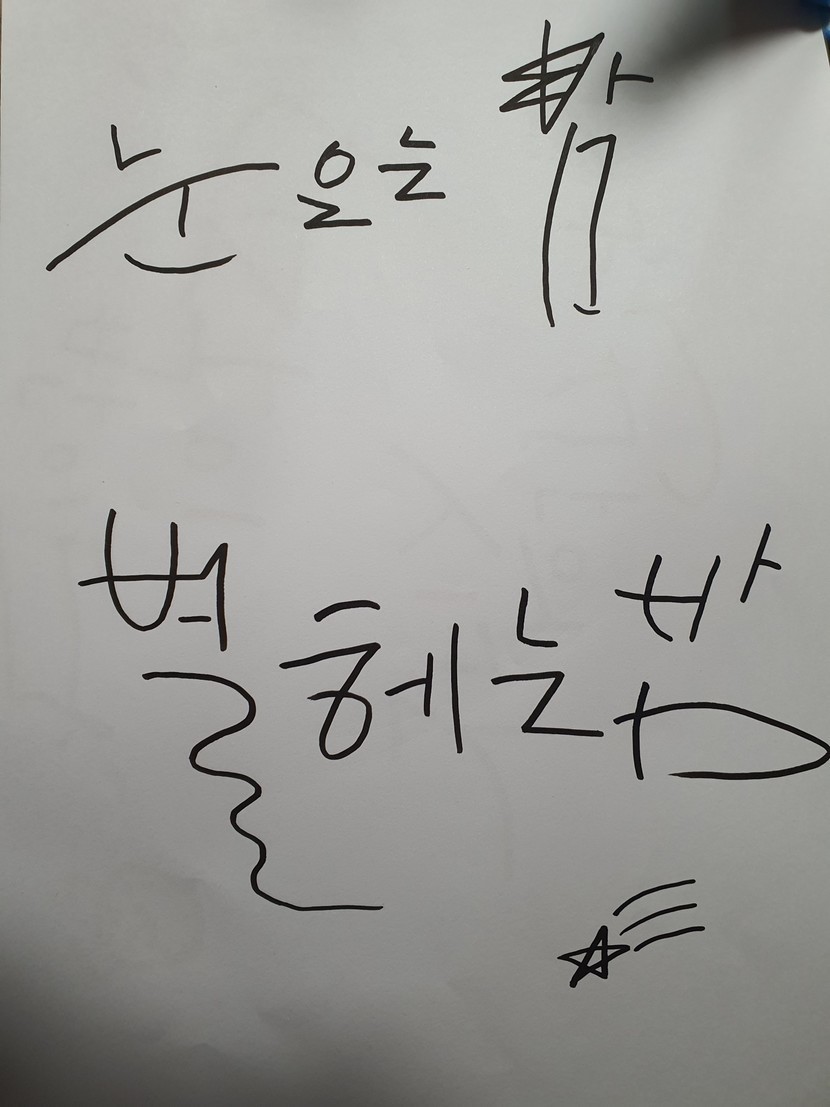 눈 오는 밤
별 헤는 밤